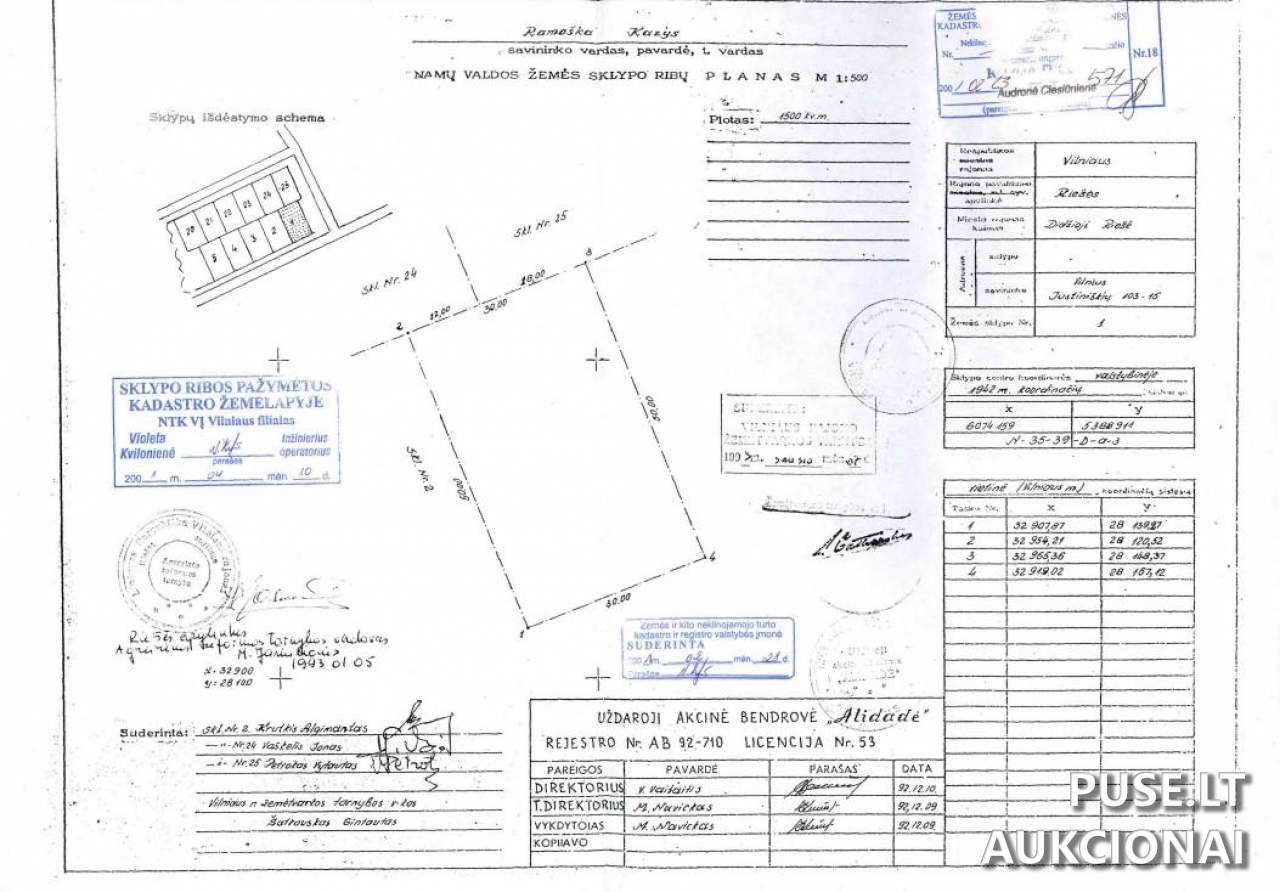 Ramoška Kazys
savininko vardas, pavardė, t. vardas
NAMŲ VALDOS ŽEMĖS SKLYPO RIBŲ PLANAS M 1:500
ŽEMĖS
KADASTR
Nr.
Nr.18
571
Audronė Ciesiūnienė
Sklypų išdėstymo schema
20 21 22 23 24 25
5 4 3 2 1
Plotas: 1500 kv.m.
Respublikos
rajonas
Vilniaus
apylinkė
Riešės
Miesto rajonas
kaimas
Didžioji Riešė
Adresas
sklypo
savininko
Vilnius
Justiniškių 103-15
Žemės sklypo Nr.
1
Skl. Nr. 24
Skl. Nr. 25
12,00
18,00
30,00
2
3
50,00
50,00
Skl. Nr. 2
30,00
1
4
SKLYPO RIBOS PAŽYMĖTOS
KADASTRO ŽEMĖLAPYJE
NTK VĮ Vilniaus filialas
Violeta
Kvilonienė
Inžinierius
operatorius
parašas
2001 m. 04 mėn 10 d.
SUDERINTA:
VILNIAUS RAJONO
Sklypo centro koordinatės valstybinėje
1942 m. koordinačių
x y
6074159 5388911
N-35-39-D-a-3
vietinė (Vilniaus m.) koordinačių sistema
Taško Nr. x y
1 32 907,87
2 32 954,21 28 120,52
3 32 965,36 28 148,37
4 32 919,02 28 167,12
Riešės apylinkės
Agrarinės reformos tarnybos vadovas
1993 01 05
x=32900
y=28100
Žemės ir kito nekilnojamojo turto
kadastro ir registro valstybės įmonė
SUDERINTA
Parašas
Suderinta: Skl. Nr. 2. Krutkis Algimantas
—"- Nr.24 Vaškelis Jonas
—"- Nr.25 Petrokas Vytautas
Vilniaus r. žemėtvarkos tarnybos v-kas
Šatrauskas Gintautas
UŽDAROJI AKCINĖ BENDROVĖ „Alidadė"
REJESTRO Nr. AB 92-710 LICENCIJA Nr. 53
PAREIGOS PAVARDĖ PARAŠAS DATA
DIREKTORIUS V. Vaitaitis 92.12.10.
T.DIREKTORIUS M. Navickas 92.12.09
VYKDYTOJAS M. Navickas 92.12.09.
KOPIJAVO
PUSE.LT
AUKCIONAI